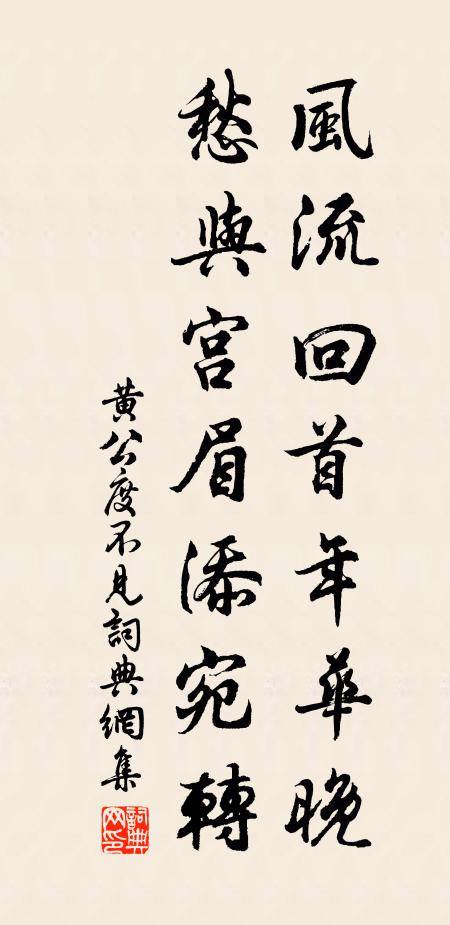 風流回首年華晚
愁與宫眉添宛轉
黄公度不見詞典網集
詞典網印